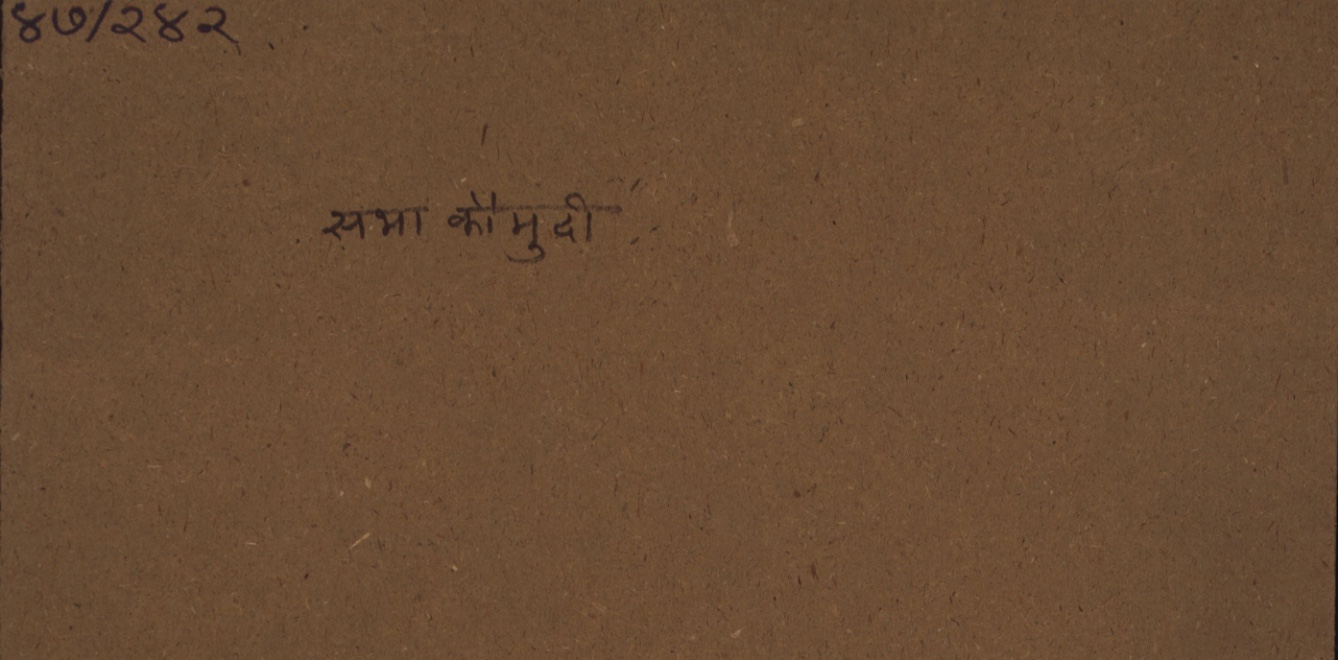 ४७/२४२
सभा कौमुदी